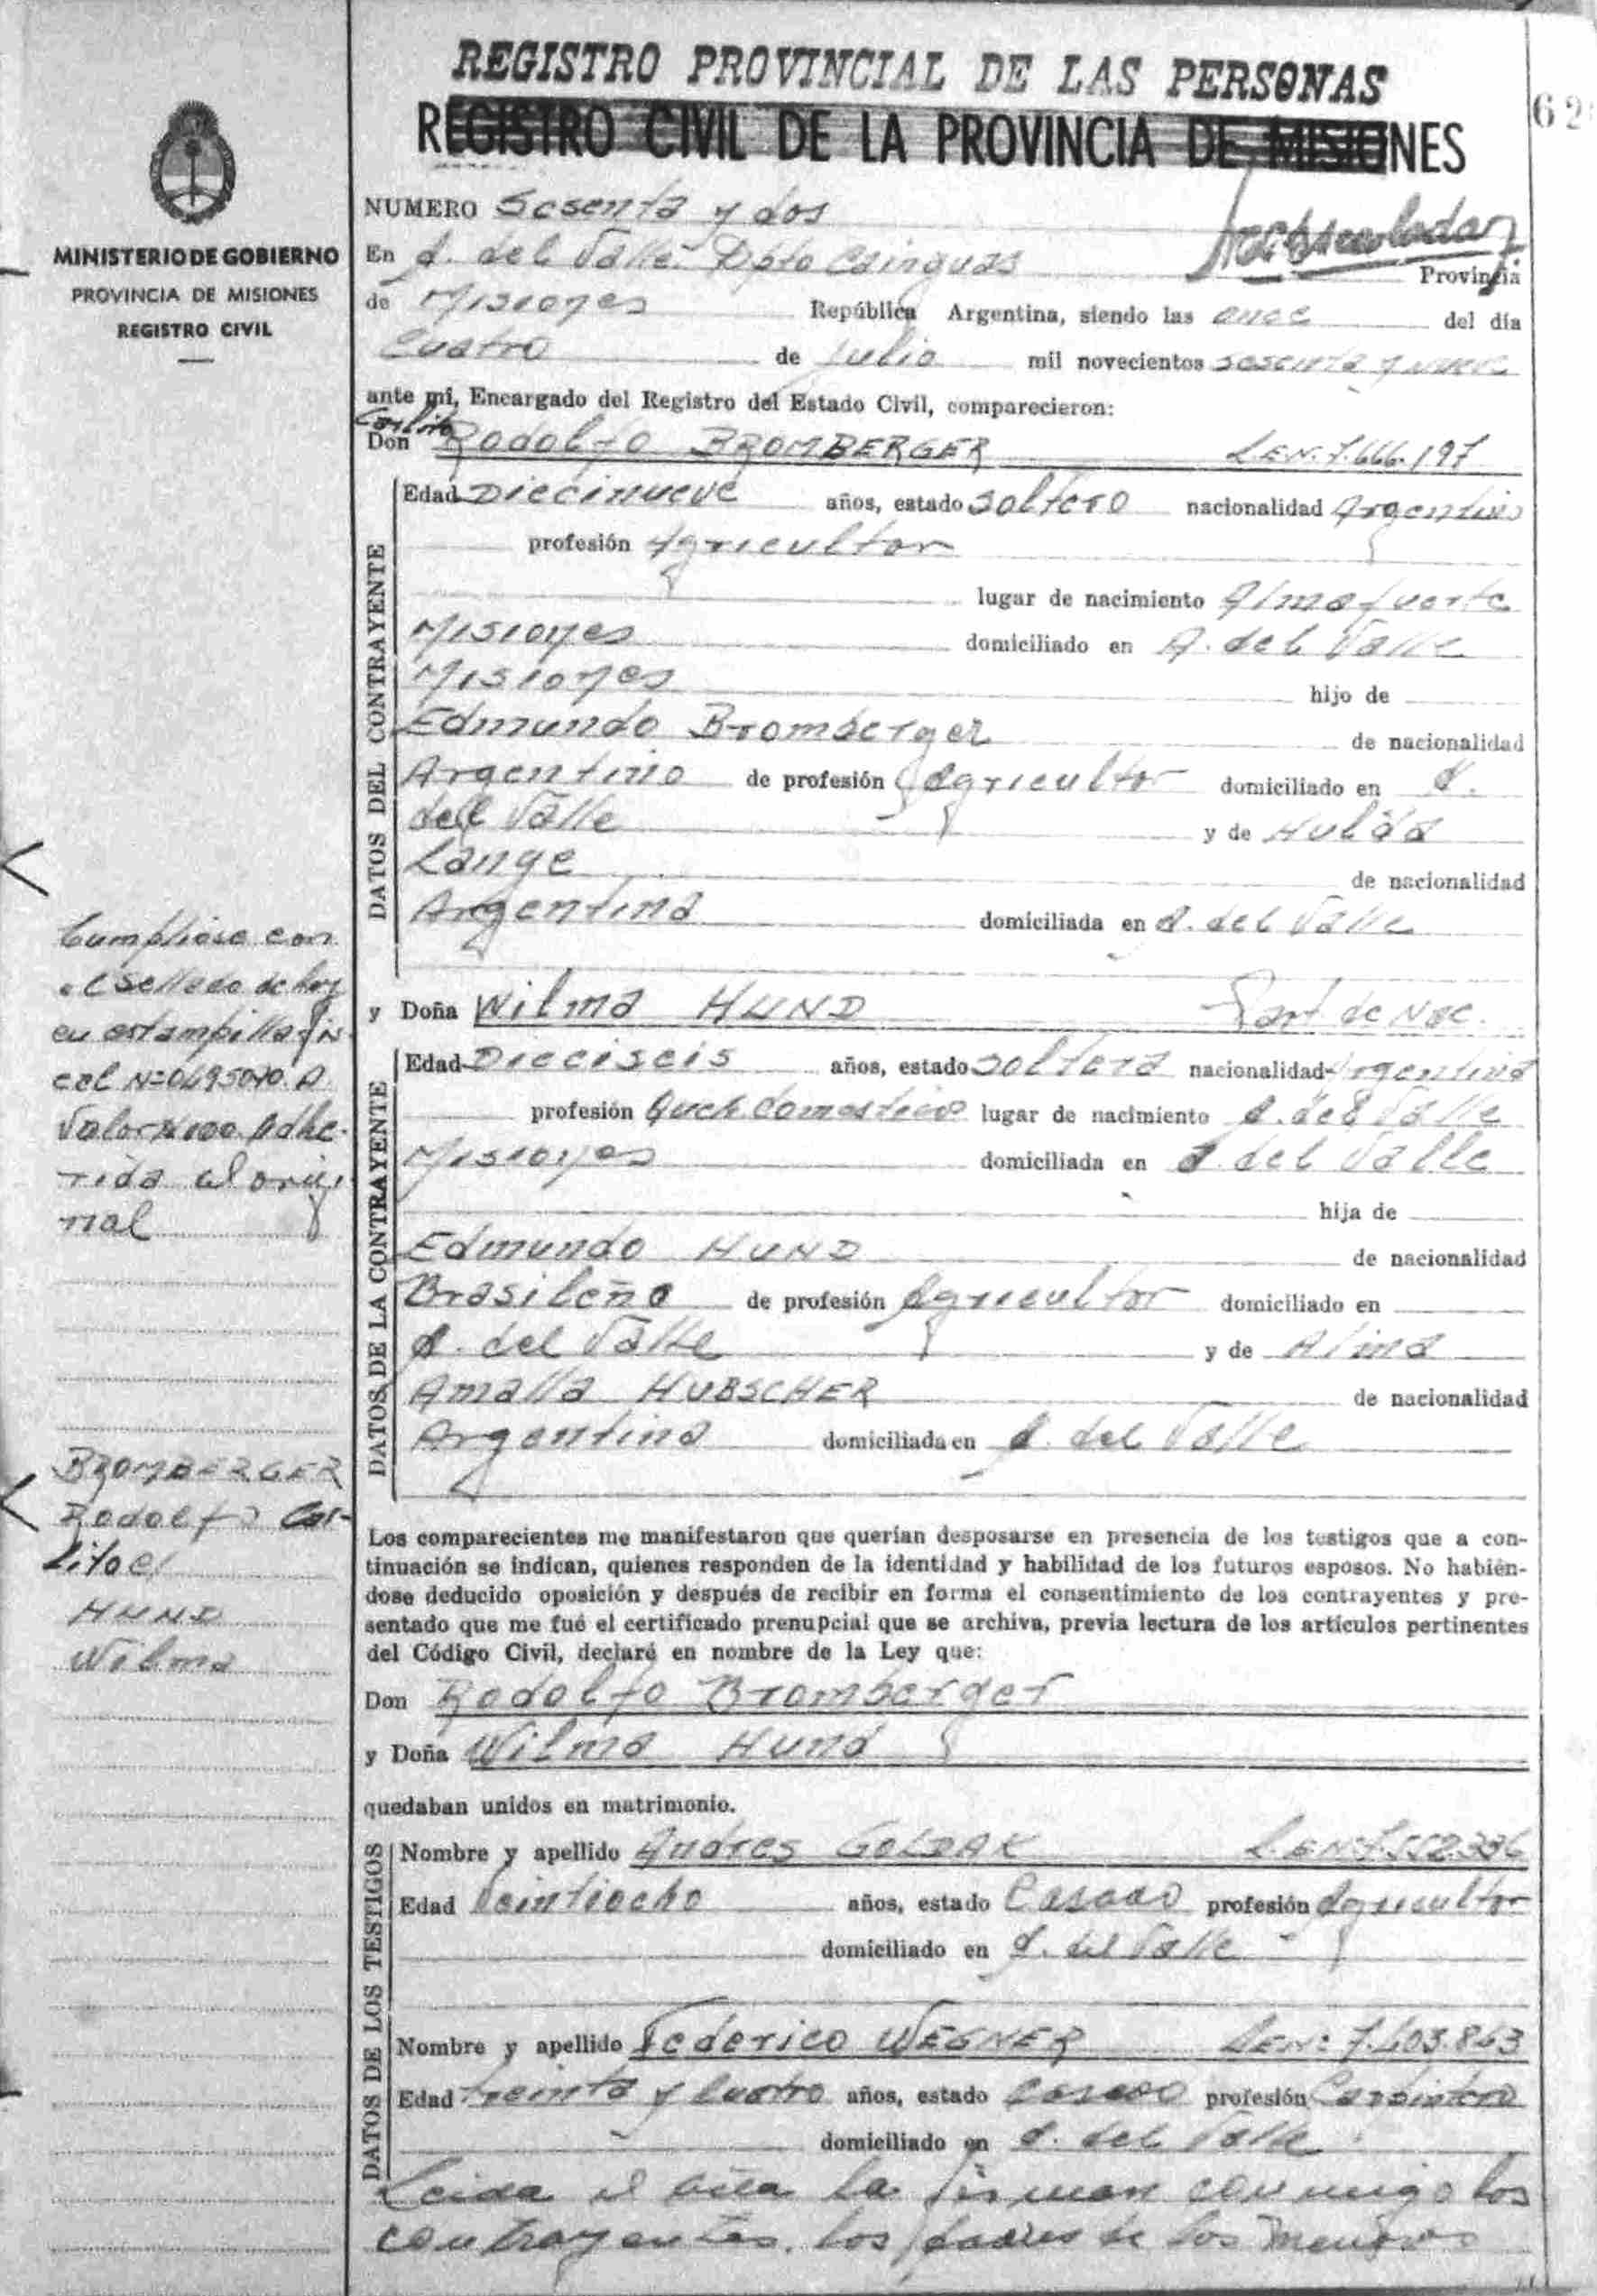 REGISTRO PROVINCIAL DE LAS PERSONAS
REGISTRO CIVIL DE LA PROVINCIA DE MISIONES
62
MINISTERIO DE GOBIERNO
PROVINCIA DE MISIONES
REGISTRO CIVIL
NUMERO Sesenta y dos
En A. del Valle Dpto Cainguas
Provincia
de Misiones República Argentina, siendo las once del día
Cuatro de Julio mil novecientos sesenta y nueve
ante mi, Encargado del Registro del Estado Civil, comparecieron:
Carlito
Don Rodolfo BROMBERGER L.E.Nº. 7.666.197
DATOS DEL CONTRAYENTE
Edad Diecinueve años, estado Soltero nacionalidad Argentino
profesión Agricultor
lugar de nacimiento Almafuerte
Misiones domiciliado en A. del Valle
Misiones hijo de
Edmundo Bromberger de nacionalidad
Argentino de profesión Agricultor domiciliado en A.
del Valle y de Hulda
Lange de nacionalidad
Argentina domiciliada en A. del Valle
y Doña Wilma HUND Part de Nac.
DATOS DE LA CONTRAYENTE
Edad Dieciseis años, estado Soltera nacionalidad Argentina
profesión Queh. Domesticos lugar de nacimiento A. del Valle
Misiones domiciliada en A. del Valle
hija de
Edmundo HUND de nacionalidad
Brasileño de profesión Agricultor domiciliado en
A. del Valle y de Alma
Amalia HUBSCHER de nacionalidad
Argentina domiciliada en A. del Valle
Los comparecientes me manifestaron que querían desposarse en presencia de los testigos que a con-
tinuación se indican, quienes responden de la identidad y habilidad de los futuros esposos. No habién-
dose deducido oposición y después de recibir en forma el consentimiento de los contrayentes y pre-
sentado que me fué el certificado prenupcial que se archiva, previa lectura de los artículos pertinentes
del Código Civil, declaré en nombre de la Ley que:
Don Rodolfo Bromberger
y Doña Wilma Hund
quedaban unidos en matrimonio.
DATOS DE LOS TESTIGOS
Nombre y apellido Andres GOLDAK L.E.Nº 7.552.336
Edad Veintiocho años, estado Casado profesión Agricultor
domiciliado en A. del Valle
DATOS DE LOS TESTIGOS
Nombre y apellido Federico WEGNER L.E.Nº: 7.603.863
Edad treinta y Cuatro años, estado Casado profesión Carpintero
domiciliado en A. del Valle
Leida el acta la firman conmigo los
contrayentes, los padres de los menores
Cumpliose con
el Sellado de ley
en estampilla fis
cal Nº 0695070 A
Valor $ 100 Adhe-
rida al origi
nal
BROMBERGER
Rodolfo Car-
lito c/
HUND
Wilma